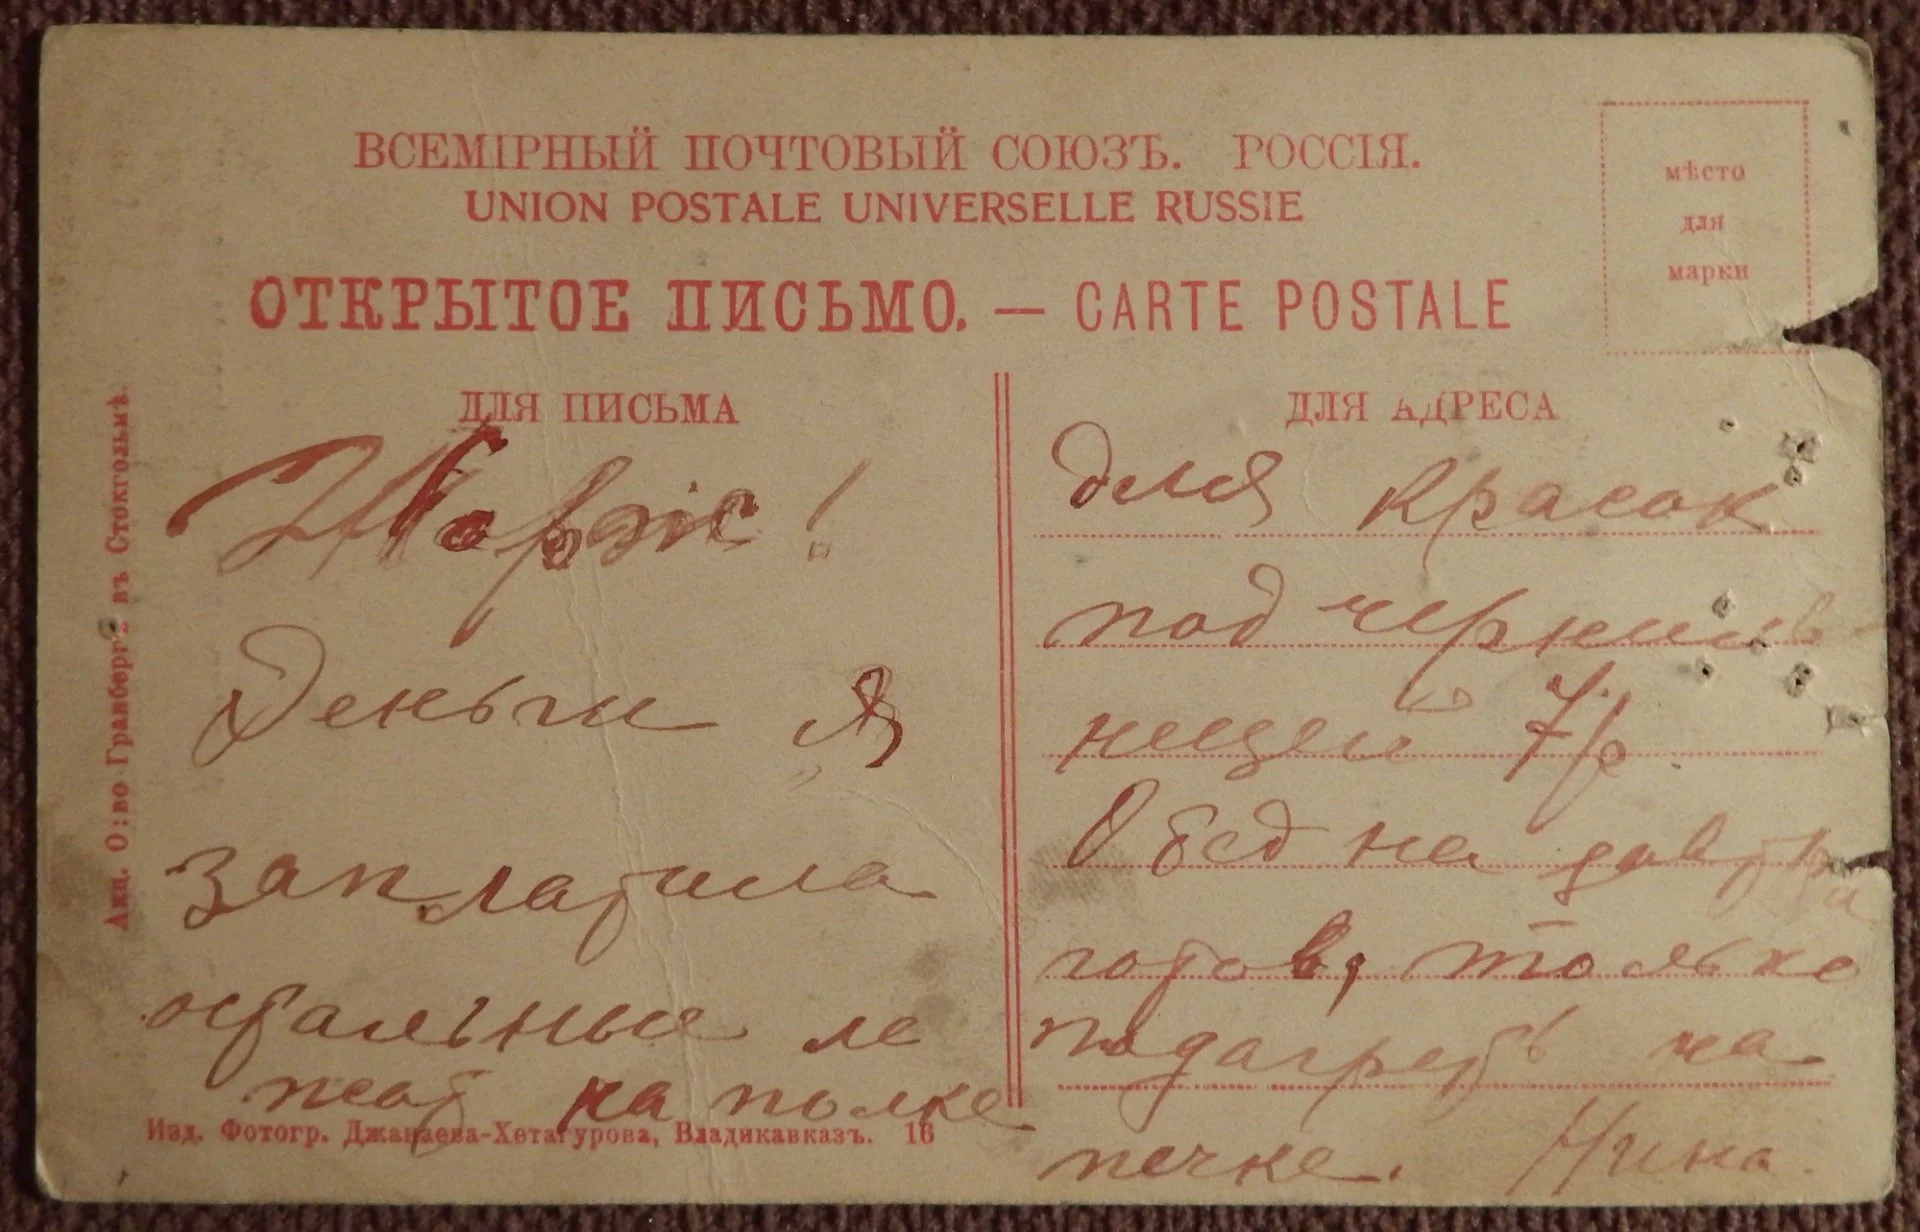 ВСЕМІРНЫЙ ПОЧТОВЫЙ СОЮЗЪ. РОССІЯ.
UNION POSTALE UNIVERSELLE RUSSIE
ОТКРЫТОЕ ПИСЬМО. — CARTE POSTALE
мѣсто
для
марки
ДЛЯ ПИСЬМА
Жорж!
Деньги я
заплатила
остальные ле
жат на полке
ДЛЯ АДРЕСА
для красок
под черниль
ницей 7 р
Обед на завтра
готов, только
подагреть на
печке. Нина.
Акц. О:во Гранбергъ въ Стокгольмѣ.
Изд. Фотогр. Джанаева-Хетагурова, Владикавказъ. 16